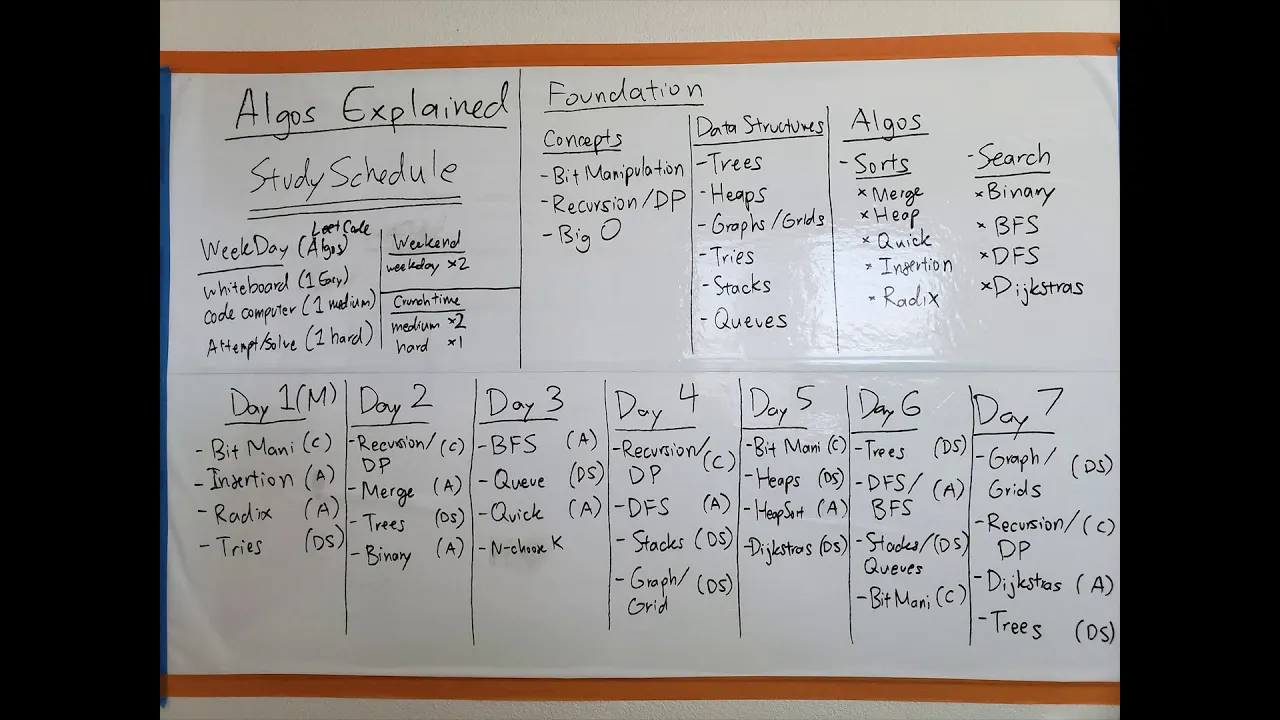 Algos Explained
Study Schedule
LeetCode
WeekDay (Algos)
Whiteboard (1 Easy)
Code computer (1 medium)
Attempt/Solve (1 hard)
Weekend
weekday x2
Crunchtime
medium x2
hard x1
Foundation
Concepts
- Bit Manipulation
- Recursion/DP
- Big O
Data Structures
- Trees
- Heaps
- Graphs/Grids
- Tries
- Stacks
- Queues
Algos
- Sorts
x Merge
x Heap
x Quick
x Insertion
x Radix
- Search
x Binary
x BFS
x DFS
x Dijkstras
Day 1(M)
- Bit Mani (C)
- Insertion (A)
- Radix (A)
- Tries (DS)
Day 2
- Recursion/ (C)
DP
- Merge (A)
- Trees (DS)
- Binary (A)
Day 3
- BFS (A)
- Queue (DS)
- Quick (A)
- N-choose K
Day 4
- Recursion/ (C)
DP
- DFS (A)
- Stacks (DS)
- Graph/ (DS)
Grid
Day 5
- Bit Mani (C)
- Heaps (DS)
- HeapSort (A)
- Dijkstras (DS)
Day 6
- Trees (DS)
- DFS/ (A)
BFS
- Stacks/ (DS)
Queues
- Bit Mani (C)
Day 7
- Graph/ (DS)
Grids
- Recursion/ (C)
DP
- Dijkstras (A)
- Trees (DS)